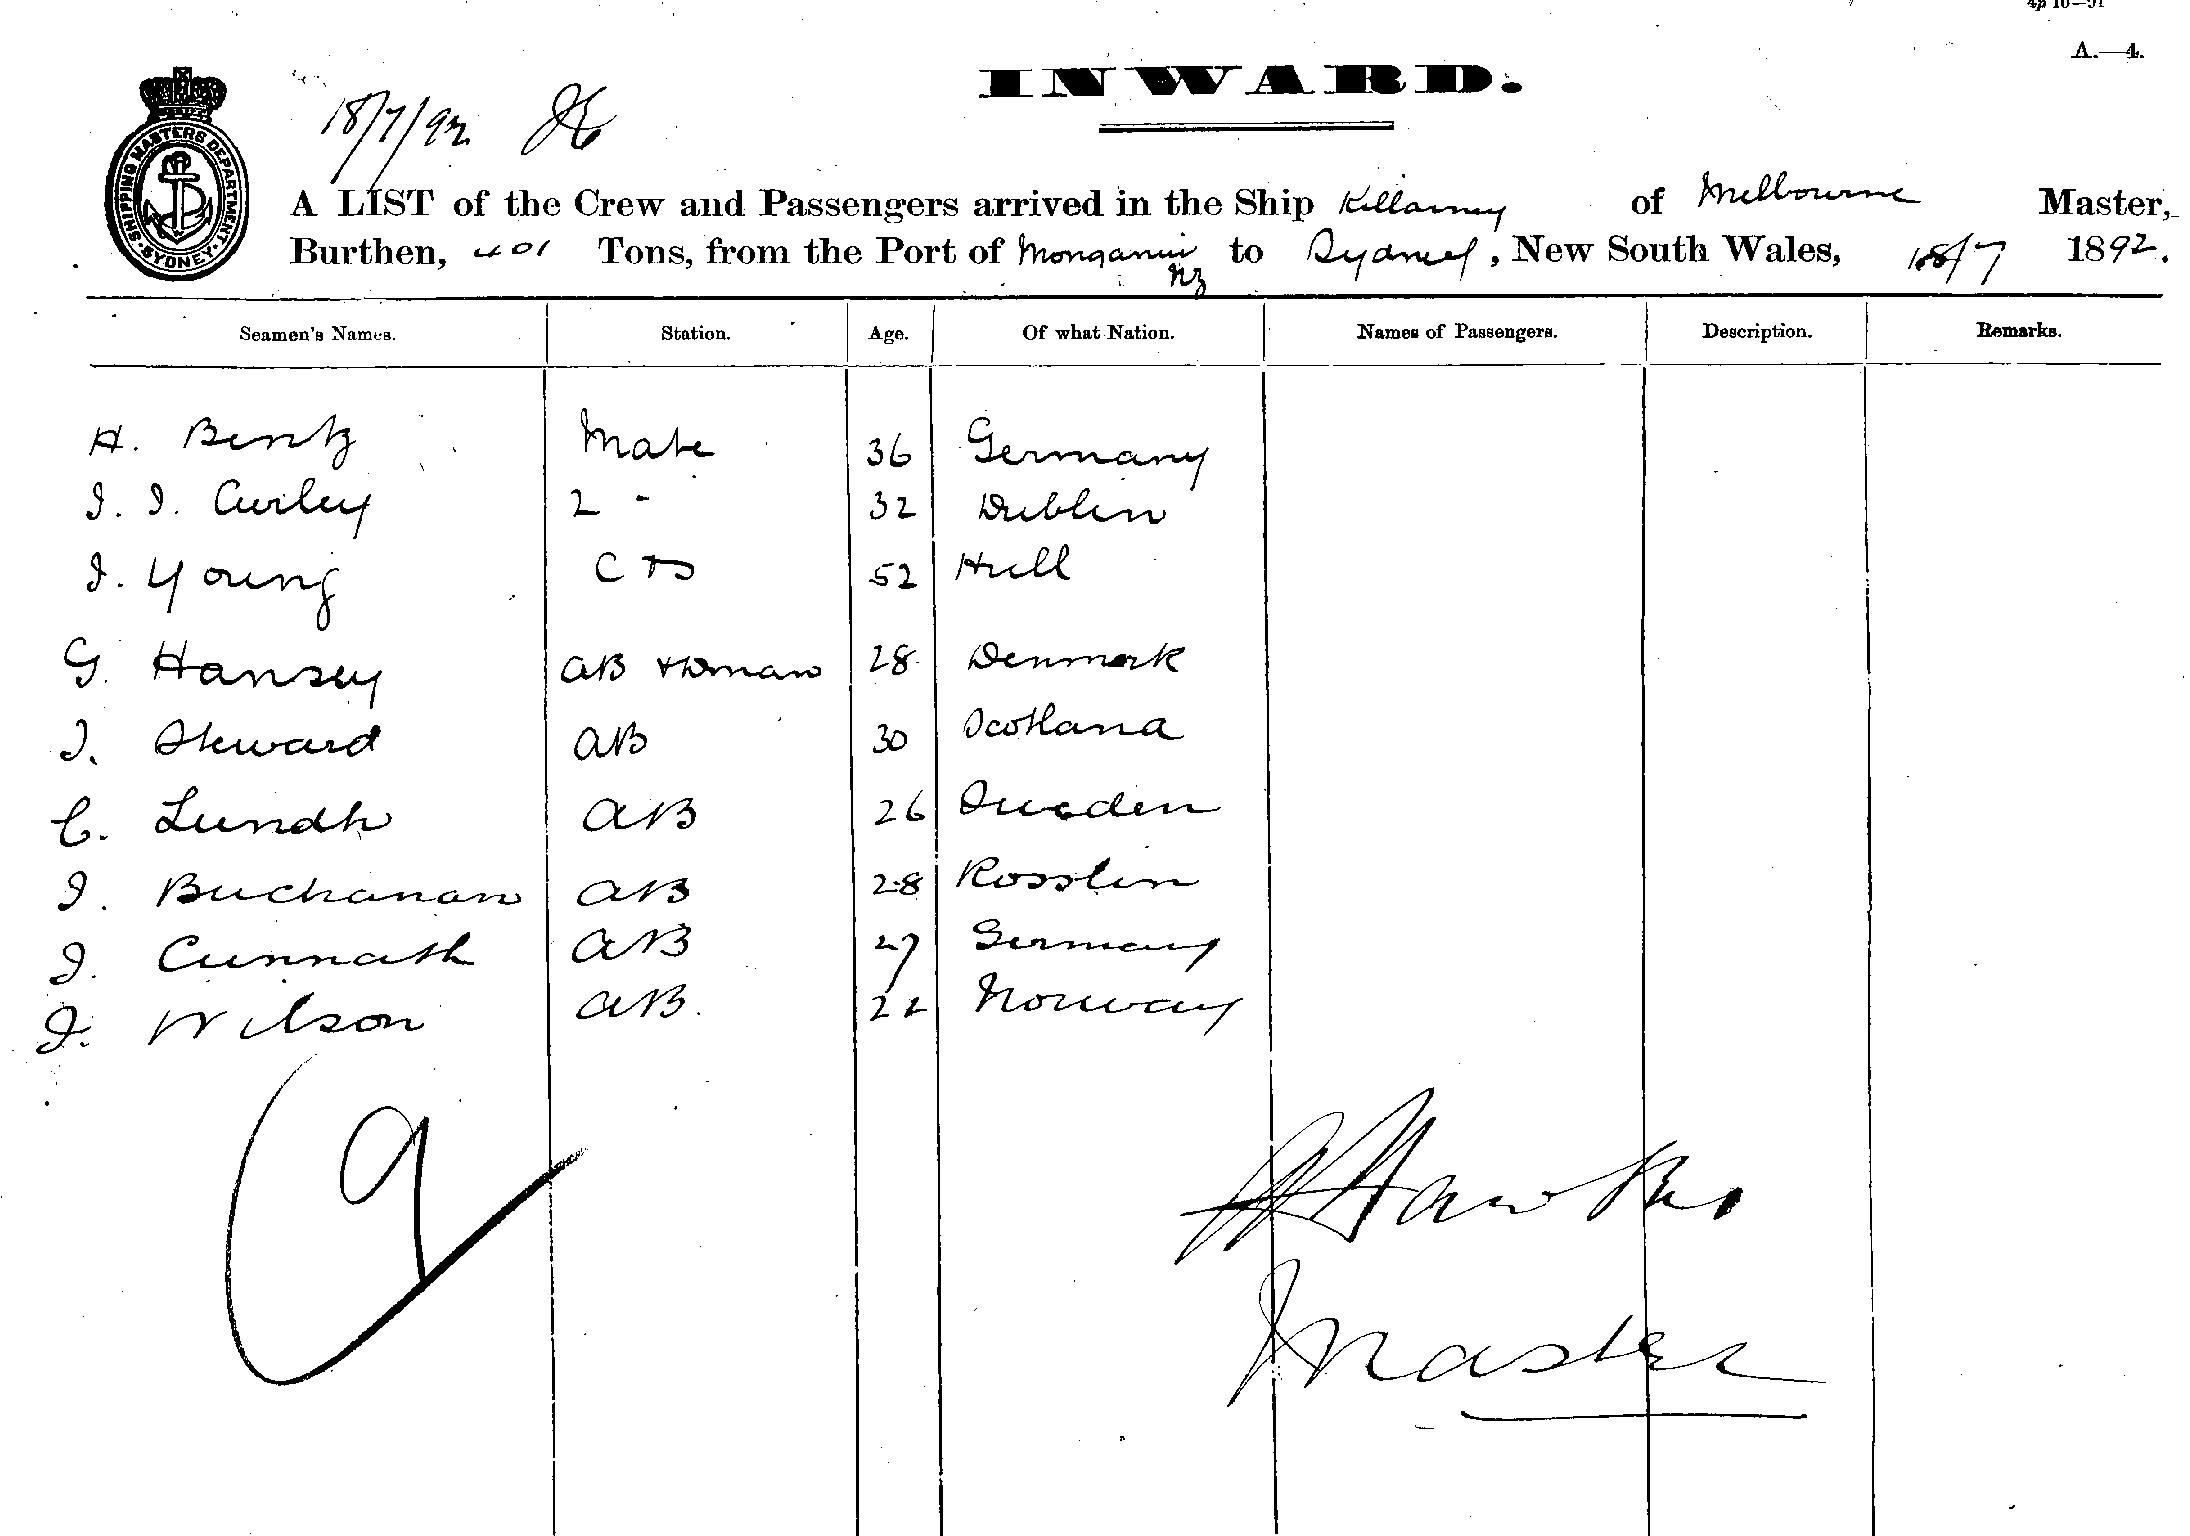 4p 10—91
A.—4.
INWARD.
18/7/92
SHIPPING MASTERS DEPARTMENT SYDNEY
A LIST of the Crew and Passengers arrived in the Ship Killarney of Melbourne Master,
Burthen, 401 Tons, from the Port of Monganui NZ to Sydney, New South Wales, 18/7 1892.
Seamen's Names. Station. Age. Of what Nation. Names of Passengers. Description. Remarks.
H. Bentz Mate 36 Germany
J. J. Curley 2 - 32 Dublin
J. Young C+S 52 Hull
G. Hansey AB 28 Denmark
J. Steward AB 30 Scotland
C. Lundh AB 26 Sweden
J. Buchanan AB 28 Rosslin
J. Cunnath AB 27 Germany
J. Wilson AB. 22 Norway
9
Hawkes
Master